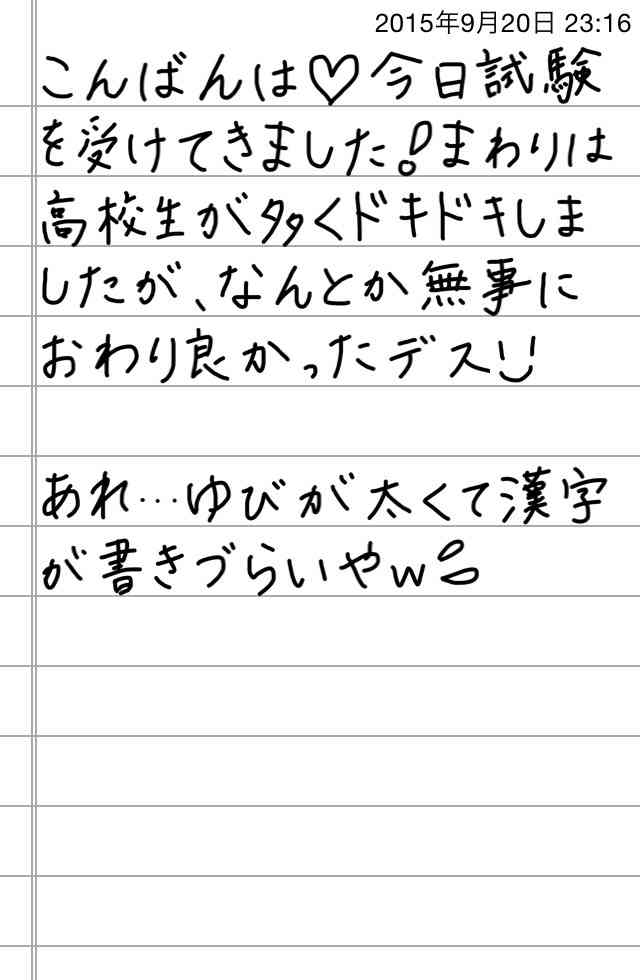 2015年9月20日 23:16
こんばんは♡今日試験
を受けてきました!まわりは
高校生が多くドキドキしま
したが、なんとか無事に
おわり良かったデス
あれ…ゆびが太くて漢字
が書きづらいやw